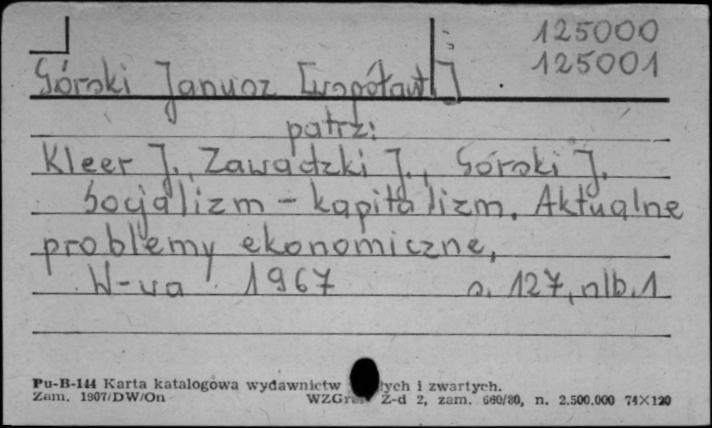 125000
125001
Górski Janusz [współaut.]
patrz:
Kleer J., Zawadzki J., Górski J.
Socjalizm - kapitalizm. Aktualne
problemy ekonomiczne,
W-wa 1967 s. 127, nlb. 1
Pu-B-144 Karta katalogowa wydawnictw i zwartych.
Zam. 1907/DW/On WZGraf Z-d 2, zam. 660/80, n. 2.500.000 74×120